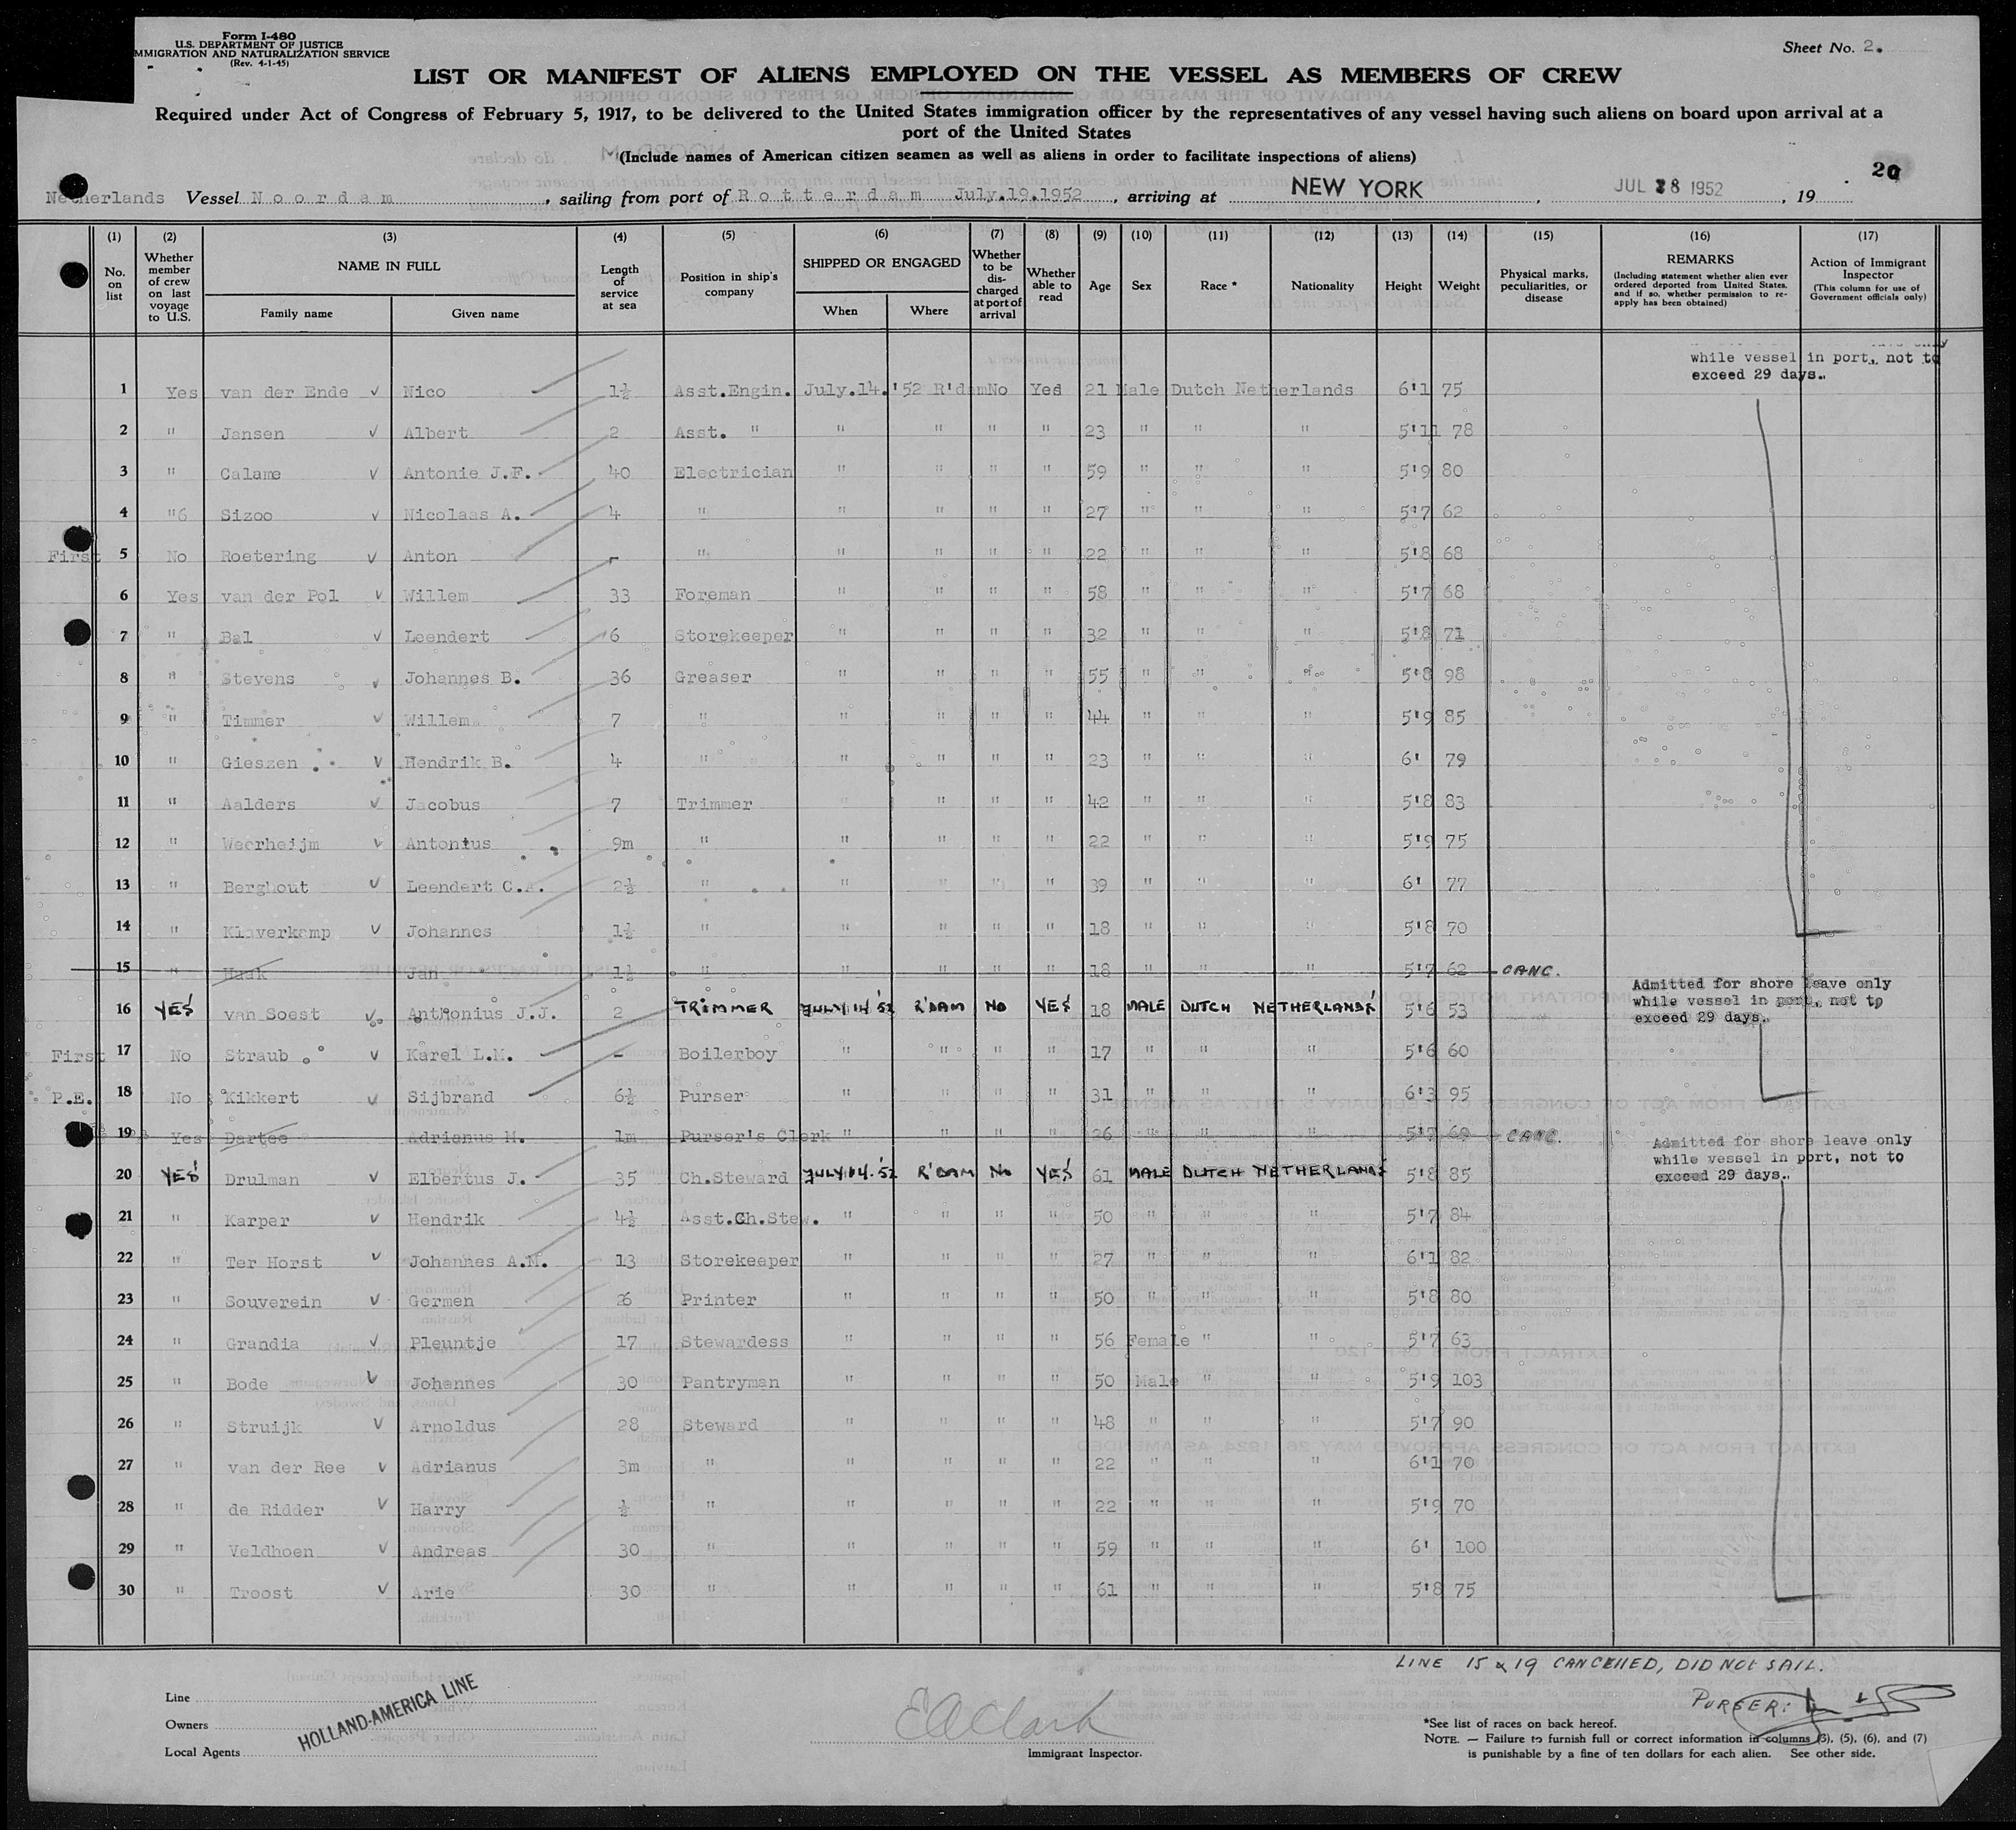 Form I-480
U.S. DEPARTMENT OF JUSTICE
IMMIGRATION AND NATURALIZATION SERVICE
(Rev. 4-1-45)
Sheet No. 2.
LIST OR MANIFEST OF ALIENS EMPLOYED ON THE VESSEL AS MEMBERS OF CREW
Required under Act of Congress of February 5, 1917, to be delivered to the United States immigration officer by the representatives of any vessel having such aliens on board upon arrival at a
port of the United States
(Include names of American citizen seamen as well as aliens in order to facilitate inspections of aliens)
20
Netherlands Vessel Noordam, sailing from port of Rotterdam July.19.1952, arriving at NEW YORK, JUL 28 1952, 19
(1) (2) (3) (4) (5) (6) (7) (8) (9) (10) (11) (12) (13) (14) (15) (16) (17)
No. on list
Whether member of crew on last voyage to U.S.
NAME IN FULL
Family name Given name
Length of service at sea
Position in ship's company
SHIPPED OR ENGAGED
When Where
Whether to be discharged at port of arrival
Whether able to read
Age Sex Race * Nationality Height Weight
Physical marks, peculiarities, or disease
REMARKS
(Including statement whether alien ever ordered deported from United States, and if so, whether permission to re-apply has been obtained)
Action of Immigrant Inspector
(This column for use of Government officials only)
while vessel in port, not to
exceed 29 days.
1 Yes van der Ende ✓ Nico 1½ Asst.Engin. July.14.'52 R'dam No Yes 21 Male Dutch Netherlands 6'1 75
2 " Jansen ✓ Albert 2 Asst. " " " " " 23 " " " 5'11 78
3 " Calame ✓ Antonie J.F. 40 Electrician " " " " 59 " " " 5'9 80
4 "6 Sizoo ✓ Nicolaas A. 4 " " " " " 27 " " " 5'7 62
First 5 No Roetering ✓ Anton - " " " " " 22 " " " 5'8 68
6 Yes van der Pol ✓ Willem 33 Foreman " " " " 58 " " " 5'7 68
7 " Bal ✓ Leendert 6 Storekeeper " " " " 32 " " " 5'8 71
8 " Stevens ✓ Johannes B. 36 Greaser " " " " 55 " " " 5'8 98
9 " Timmer ✓ Willem 7 " " " " " 44 " " " 5'9 85
10 " Gieszen ✓ Hendrik B. 4 " " " " " 23 " " " 6' 79
11 " Aalders ✓ Jacobus 7 Trimmer " " " " 42 " " " 5'8 83
12 " Weerheijm ✓ Antonius 9m " " " " " 22 " " " 5'9 75
13 " Berghout ✓ Leendert C.A. 2½ " " " " " 39 " " " 6' 77
14 " Klaverkamp ✓ Johannes 1½ " " " " " 18 " " " 5'8 70
15 " Haak Jan 1½ " " " " " 18 " " " 5'7 62 CANC.
Admitted for shore leave only
while vessel in port, not to
exceed 29 days.
16 YES van Soest ✓ Anthonius J.J. 2 TRIMMER JULY 14 '52 R'DAM NO YES 18 MALE DUTCH NETHERLANDS 5'6 53
First 17 No Straub ✓ Karel L.M. - Boilerboy " " " " 17 " " " 5'6 60
P.E. 18 No Kikkert ✓ Sijbrand 6½ Purser " " " " 31 " " " 6'3 95
19 Yes Dartee Adrianus M. 1m Purser's Clerk " " " " 26 " " " 5'7 69 CANC.
Admitted for shore leave only
while vessel in port, not to
exceed 29 days.
20 YES Drulman ✓ Elbertus J. 35 Ch.Steward JULY 14.'52 R'DAM No YES 61 MALE DUTCH NETHERLANDS 5'8 85
21 " Karper ✓ Hendrik 4½ Asst.Ch.Stew. " " " " 50 " " " 5'7 84
22 " Ter Horst ✓ Johannes A.M. 13 Storekeeper " " " " 27 " " " 6'1 82
23 " Souverein ✓ Germen 26 Printer " " " " 50 " " " 5'8 80
24 " Grandia ✓ Pleuntje 17 Stewardess " " " " 56 Female " " 5'7 63
25 " Bode ✓ Johannes 30 Pantryman " " " " 50 Male " " 5'9 103
26 " Struijk ✓ Arnoldus 28 Steward " " " " 48 " " " 5'7 90
27 " van der Ree ✓ Adrianus 3m " " " " " 22 " " " 6'1 70
28 " de Ridder ✓ Harry ½ " " " " " 22 " " " 5'9 70
29 " Veldhoen ✓ Andreas 30 " " " " " 59 " " " 6' 100
30 " Troost ✓ Arie 30 " " " " " 61 " " " 5'8 75
LINE 15 & 19 CANCELLED, DID NOT SAIL.
PURSER:
Line
Owners
Local Agents
HOLLAND-AMERICA LINE
EAClark
Immigrant Inspector.
*See list of races on back hereof.
NOTE. — Failure to furnish full or correct information in columns (3), (5), (6), and (7)
is punishable by a fine of ten dollars for each alien. See other side.